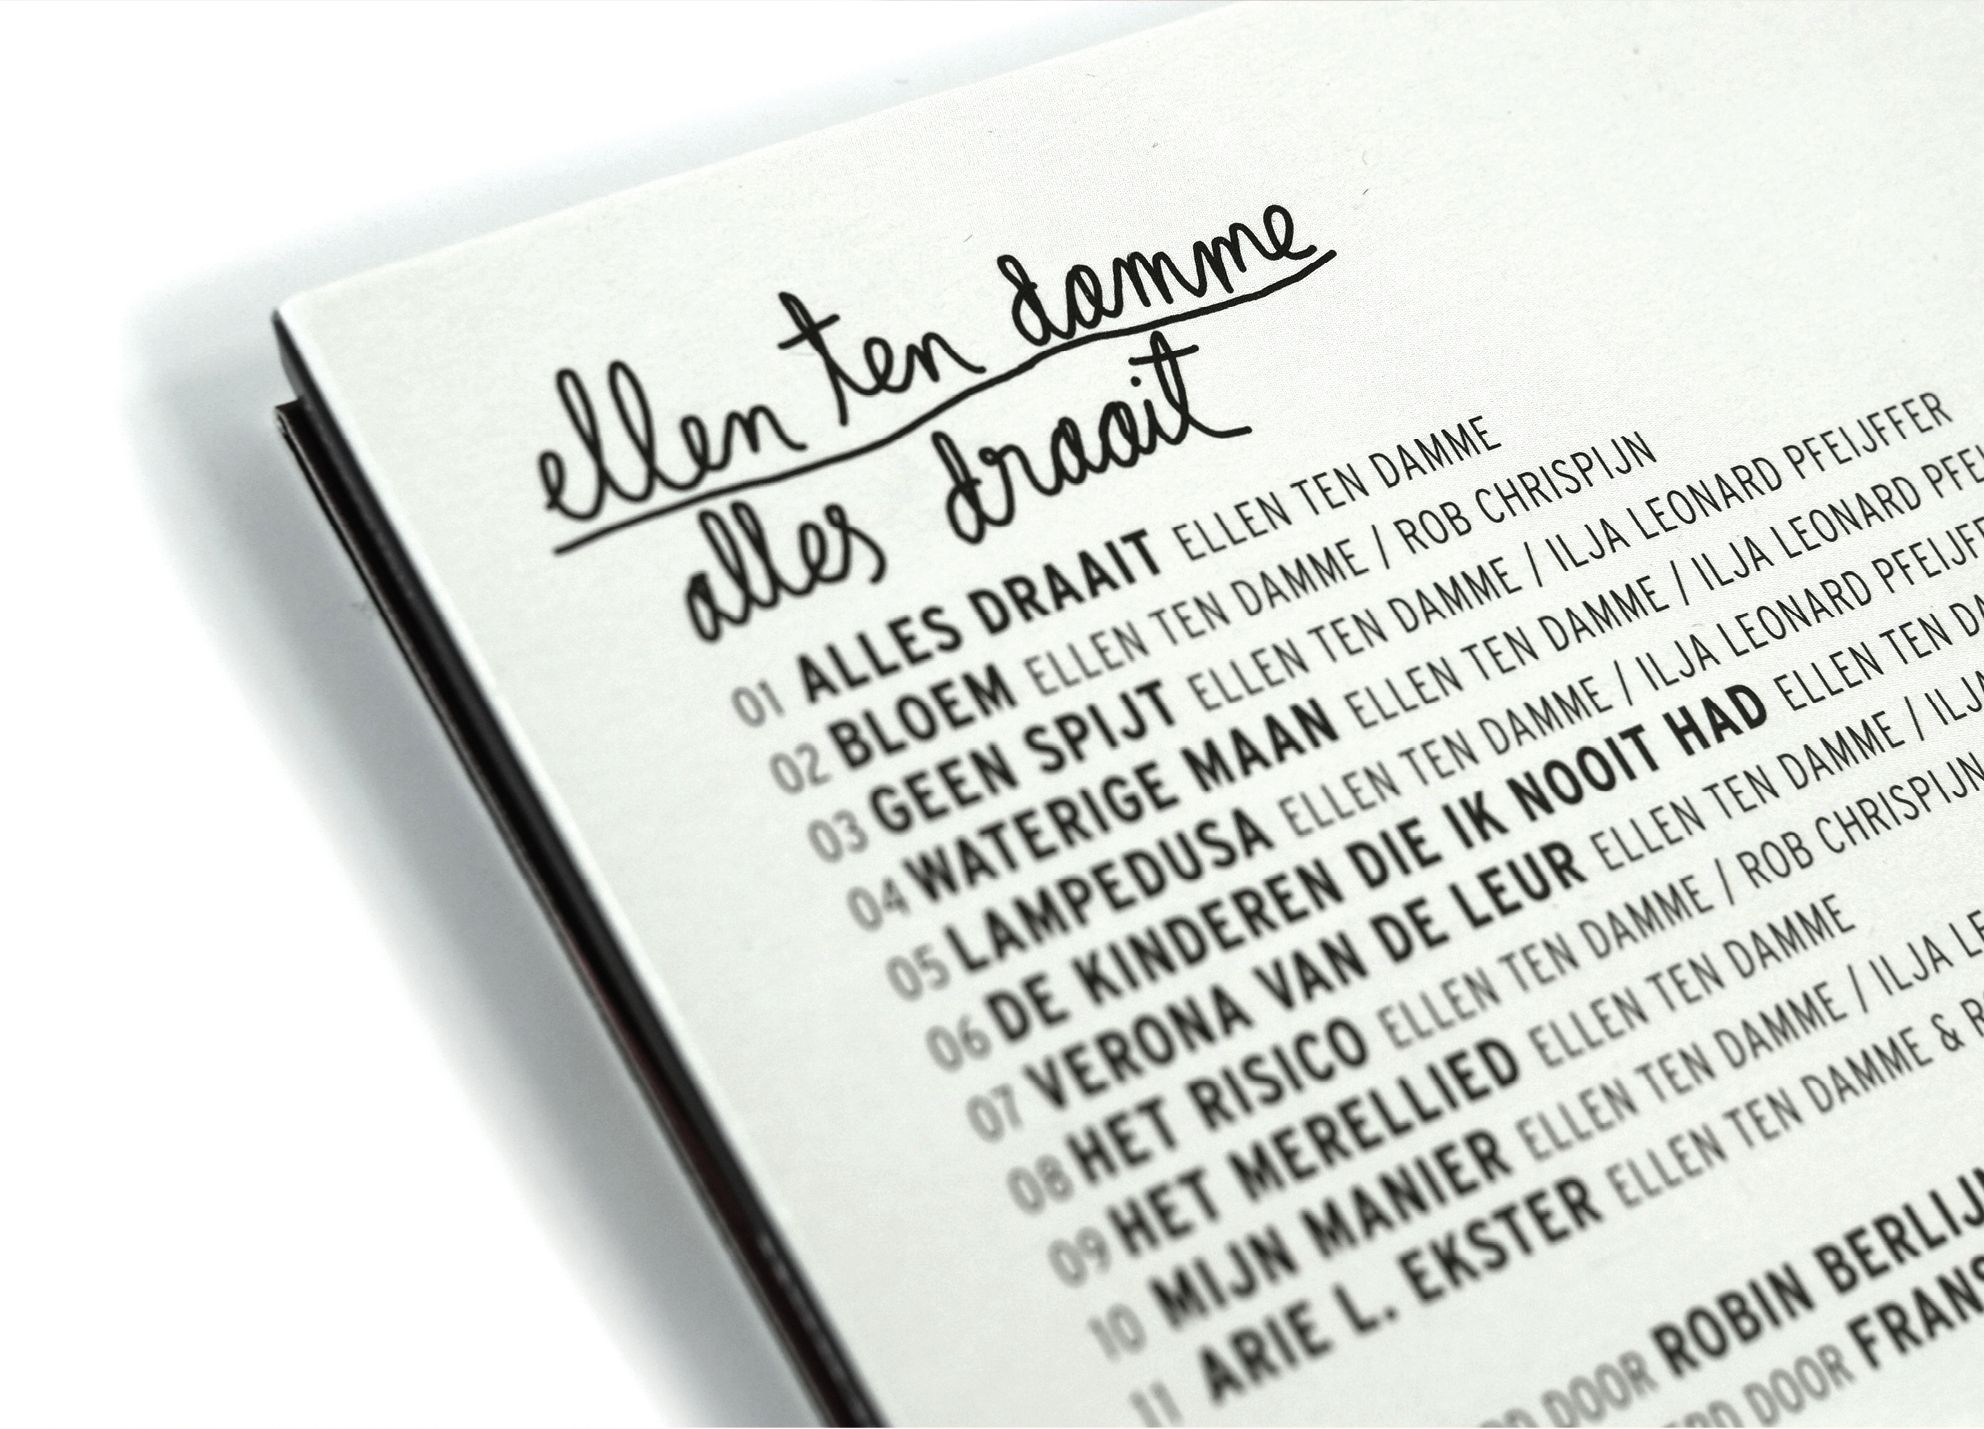 ellen ten damme
alles draait
01 ALLES DRAAIT ELLEN TEN DAMME
02 BLOEM ELLEN TEN DAMME / ROB CHRISPIJN
03 GEEN SPIJT ELLEN TEN DAMME / ILJA LEONARD PFEIJFFER
04 WATERIGE MAAN ELLEN TEN DAMME / ILJA LEONARD PFEI
05 LAMPEDUSA ELLEN TEN DAMME / ILJA LEONARD PFEIJF
06 DE KINDEREN DIE IK NOOIT HAD ELLEN TEN DA
07 VERONA VAN DE LEUR ELLEN TEN DAMME / ILJA
08 HET RISICO ELLEN TEN DAMME / ROB CHRISPIJN
09 HET MERELLIED ELLEN TEN DAMME
10 MIJN MANIER ELLEN TEN DAMME / ILJA LE
11 ARIE L. EKSTER ELLEN TEN DAMME & R
DOOR ROBIN BERLIJN
DOOR FRANS